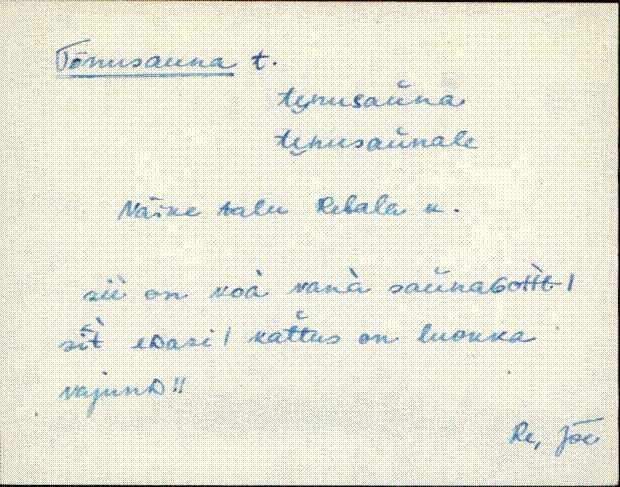 Tõnusauna t.
te̮nusaũna
te̮nusaũnale
Väike talu Rebala k.
siì on koà vanà saũna
sìt eDasi / kattus on luokka
vajunD!!
Re, Jõe